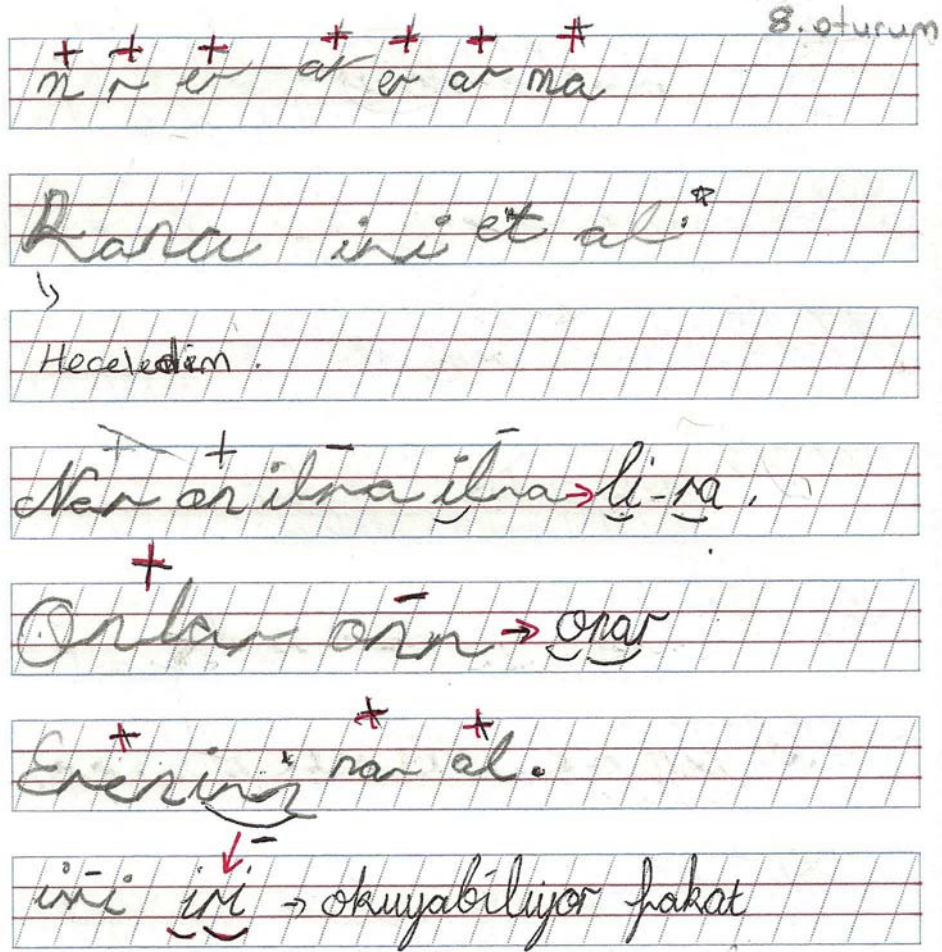 8. oturum
n r er ar er ar na
Rana iri et al.
Heceledim.
Nar an ilra ilra → li-ra.
Onlar onr → onar
Erer iri nar al.
iri iri → okuyabiliyor fakat